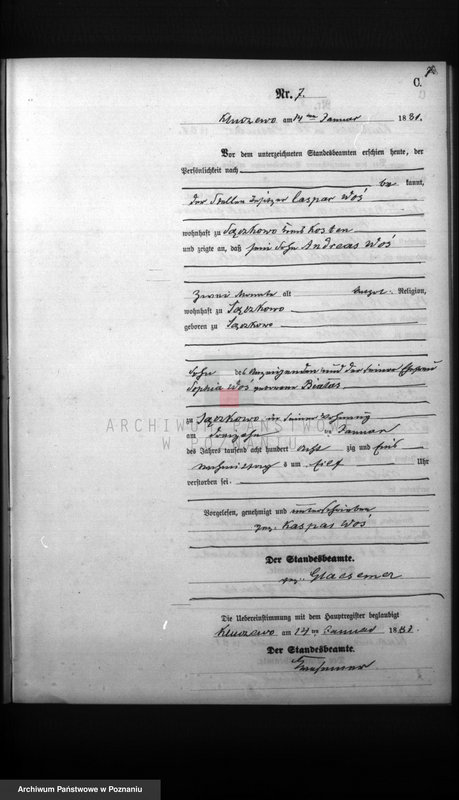 C.
Nr. 7.
Kluczewo am 14ten Januar 1881.
Vor dem unterzeichneten Standesbeamten erschien heute, der
Persönlichkeit nach
be kannt,
der Stellenbesitzer Caspar Woś
wohnhaft zu Kosten
und zeigte an, daß sein Sohn Andreas Woś
Zwei Monate alt Religion,
wohnhaft zu
geboren zu
Sohn des Anzeigenden und der seiner Ehefrau
Sophia Woś geborenen
zu in seiner Wohnung
am dreizehn ten Januar
des Jahres tausend acht hundert acht zig und Eins
Nachmittag s um Elf Uhr
verstorben sei.
Vorgelesen, genehmigt und unterschrieben
gez. Kaspar Woś
Der Standesbeamte.
gez. Glaesemer
Die Uebereinstimmung mit dem Hauptregister beglaubigt
Kluczewo am 14ten Januar 1881.
Der Standesbeamte.
Glaesemer
ARCHIWUM PAŃSTWOWE
W POZNANIU
Archiwum Państwowe w Poznaniu